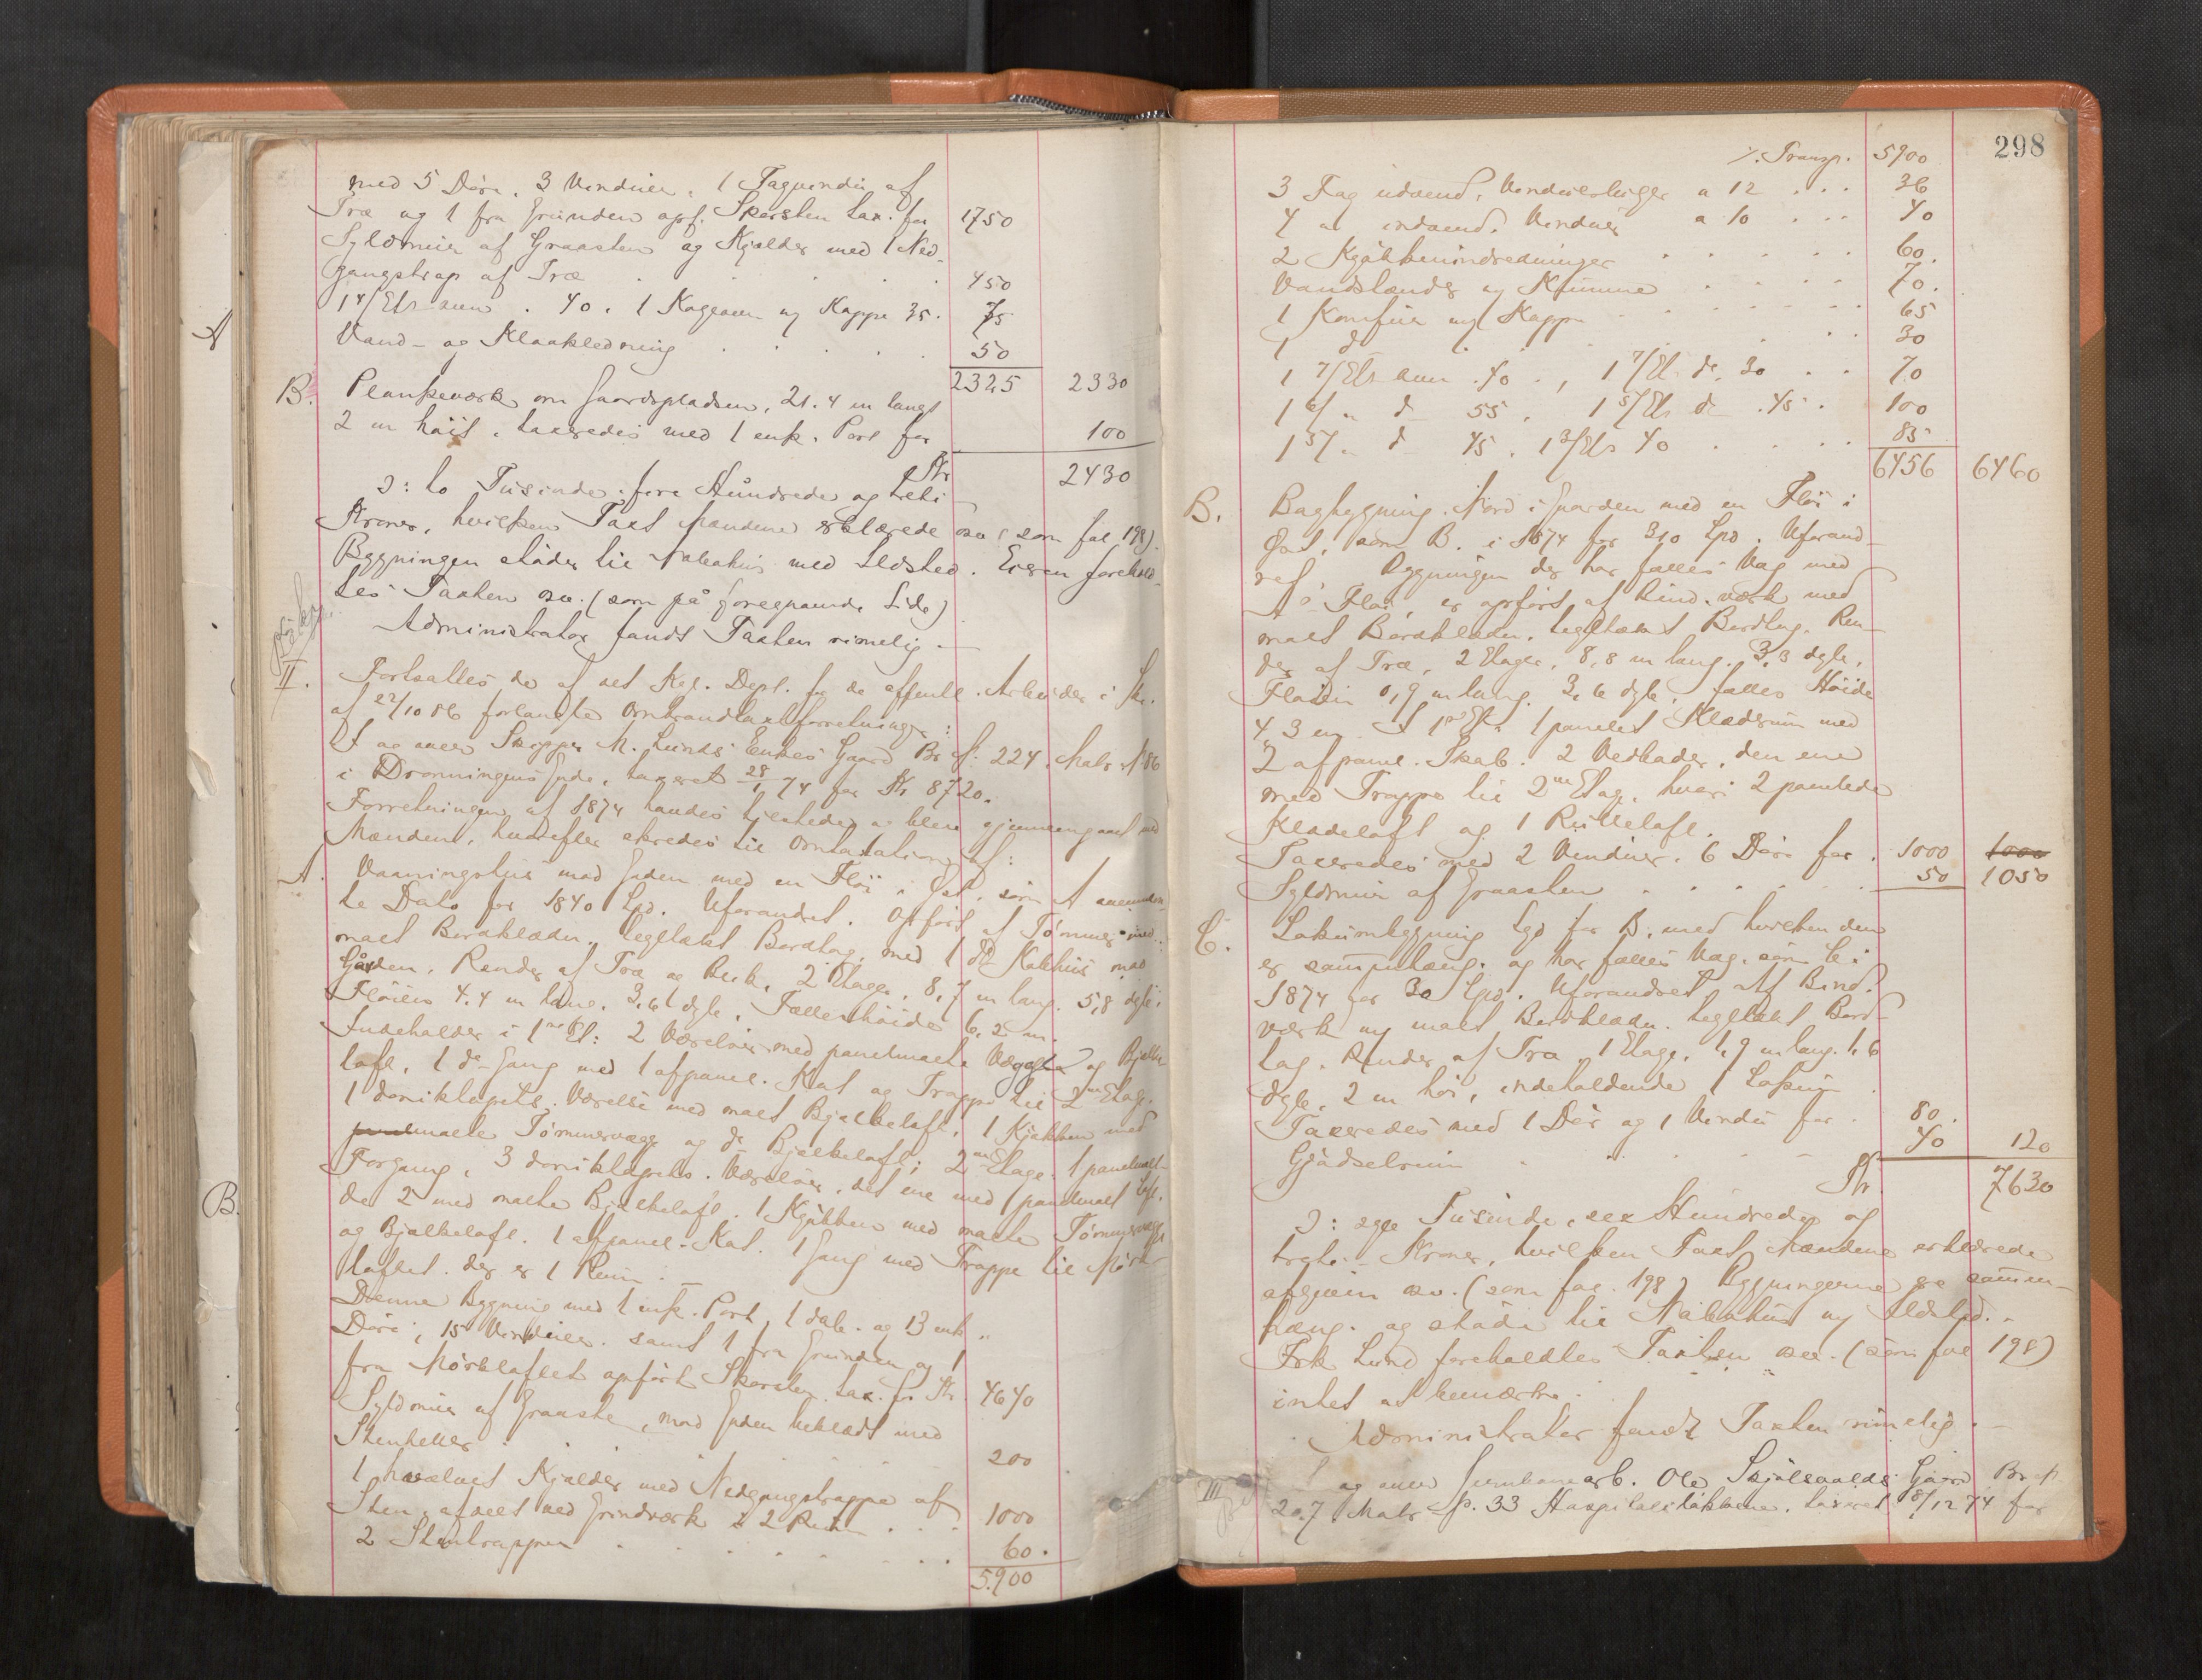 med 5 Döre, 3 Vinduer, 1 Tagvindu af
Træ og 1 fra Grunden opf. Skorsten tax. for 1750
Syldmur af Graasten og Kjælder med 1 Ned-
gangstrap af Træ . . . . 450
1 4/Etr. ovn . 40. 1 Kogeovn og Kappe 35. 75
Vand- og Kloakledning . . . . 50
2325 2330
B. Plankeværk om Gaardspladsen, 21.4 m langt
2 m höit, taxeredes med 1 enk. Port for 100
Kr 2430
ɔ: to Tusinde fire Hundrede og treti
Kroner, hvilken Taxt Mændene erklærede osv (som fol 198).
Bygningen stöder til Nabohus med Ildsted. Eieren forehold-
tes Taxten osv. (som på foregaaende Side)
Administrator fandt Taxten rimelig.—
II. Fortsattes de af det Kgl. Dept. for de offentl. Arbeider i Skr.
af 22/10 86 forlangte Ombrandtaxtforretninger:
I og over Skipper M. Lunds Enkes Gaard Br. No. 224, Matr. No. 86
i Dronningens Gade, taxeret 28/1 74 for Kr 8720.
Forretningen af 1874 havdes tilstede og blev gjennemgaaet med
Mændene, hvorefter skredes til Omtaxation af:
A. Vaaningshus mod Gaden med en Flöi i Öst, som A
te Dato for 1840 Spd. Uforandret. Opfört af Tömmer med
malt Bordklædn., tegltækt Bordtag, med 1 do Kakhus mod
Gården. Render af Træ og Blik, 2 Etager, 8,7 m lang, 5,8 dyb;
Flöien 4.4 m lang, 3,6 dyb, Fælles höide 6,2 m.
Indeholder i 1ste Et: 2 Værelser med panelmalte Vægge og Bjelke
loft, 1 do Gang med 1 afpanel. Kot og Trappe til 2den Etage.
1 domiktapets. Værelse med malt Bjelkeloft, 1 Kjökken med
malte Tömmervægge og do Bjelkeloft; 2den Etage: 1 panelmalt
Forgang, 3 domiktapets. Værelser, det ene med panelmalt Loft,
de 2 med malte Bjelkeloft. 1 Kjökken med malte Tömmervægge
og Bjelkeloft. 1 afpanel. Kot. 1 Gang med Trappe til Mörk-
loftet. der er 1 Rum.—
Denne Bygning med 1 enk. Port, 1 dob. og 13 enk.
Döre, 15 Vinduer samt 1 fra Grunden og 1
fra Mörkloftet opfört Skorsten tax. for Kr. 4640
Syldmur af Graasten, mod Gaden beklædt med
Stenheller . . . . 200
1 hvælvet Kjælder med Nedgangstrappe af
Sten, afdelt ved Grindværk i 2 Rum . . . 1000
2 Stentrapper . . . . 60.
5.900
298
./. Transp. 5900
3 Fag udvend. Vindueslüger a 12 . . . 36
4 " indvend. Vinduer a 10 . . . 40
2 Kjökkenindredninger . . . . 60.
Vandstænder og Kumme . . . . 70.
1 Komfur og Kappe . . . . 65
1 do . . . . 30
1 7/Etr. ovn . 40 . , 1 7/Et. do. 30 . . 70
1 6/ " do 55 , 1 5/Etr do . 45 . 100
1 5/ " do 45 , 1 3/Etr 40 . . . 85
6456 6460
B. Bagbygning Nord i Gaarden med en Flöi i
Öst, som B. i 1874 for 310 Spd. Uforand-
ret. Bygningen der har fælles Væg med
A's Flöi, er opfört af Bind.værk med
malt Bordklædn., tegltækt Bordtag. Ren-
der af Træ, 2 Etager, 8,8 m lang, 3,3 dyb,
Flöien 0,9 m lang, 3,6 dyb, fælles Höide
4,3 m. I 1ste Et. 1 panelet Klæderum med
2 afpanel. Skab. 2 Vedboder, den ene
med Trappe til 2den Etag, hvori 2 panelede
Klædeloft og 1 Rulleloft.
Taxeredes med 2 Vinduer, 6 Döre for . 1000 1000
Syldmur af Graasten . . . . 50 1050
C. Lokumbygning Syd for B, med hvilken den
er sammenhæng. og har fælles Væg, som C i
1874 for 30 Spd. Uforandret. Af Bind.
værk og malt Bordklædn. tegltækt Bord-
tag, Render af Træ, 1 Etage, 1,9 m lang, 1,6
dyb, 2 m höi, indeholdende 1 Lokum
Taxeredes med 1 Dör og 1 Vindu for . 80.
Gjödselrum . . . . 40 120
Kr. 7630
ɔ: syv Tusinde, sex Hundrede og
tredti Kroner, hvilken Taxt Mændene erklærede
afgiven osv. (som fol. 198) Bygningerne ere sammen-
hæng. og stöder til Nabohus og Ildsted.
Frk Lund foreholdtes Taxten osv. (som fol 198)
intet at bemærke.
Administrator fandt Taxten rimelig.—
III I og over Jernbanearb. Ole Skjölsvolds Gaard Br. No
207 Matr. No. 33 Hospitalslökkerne, taxeret 8/12 74 for